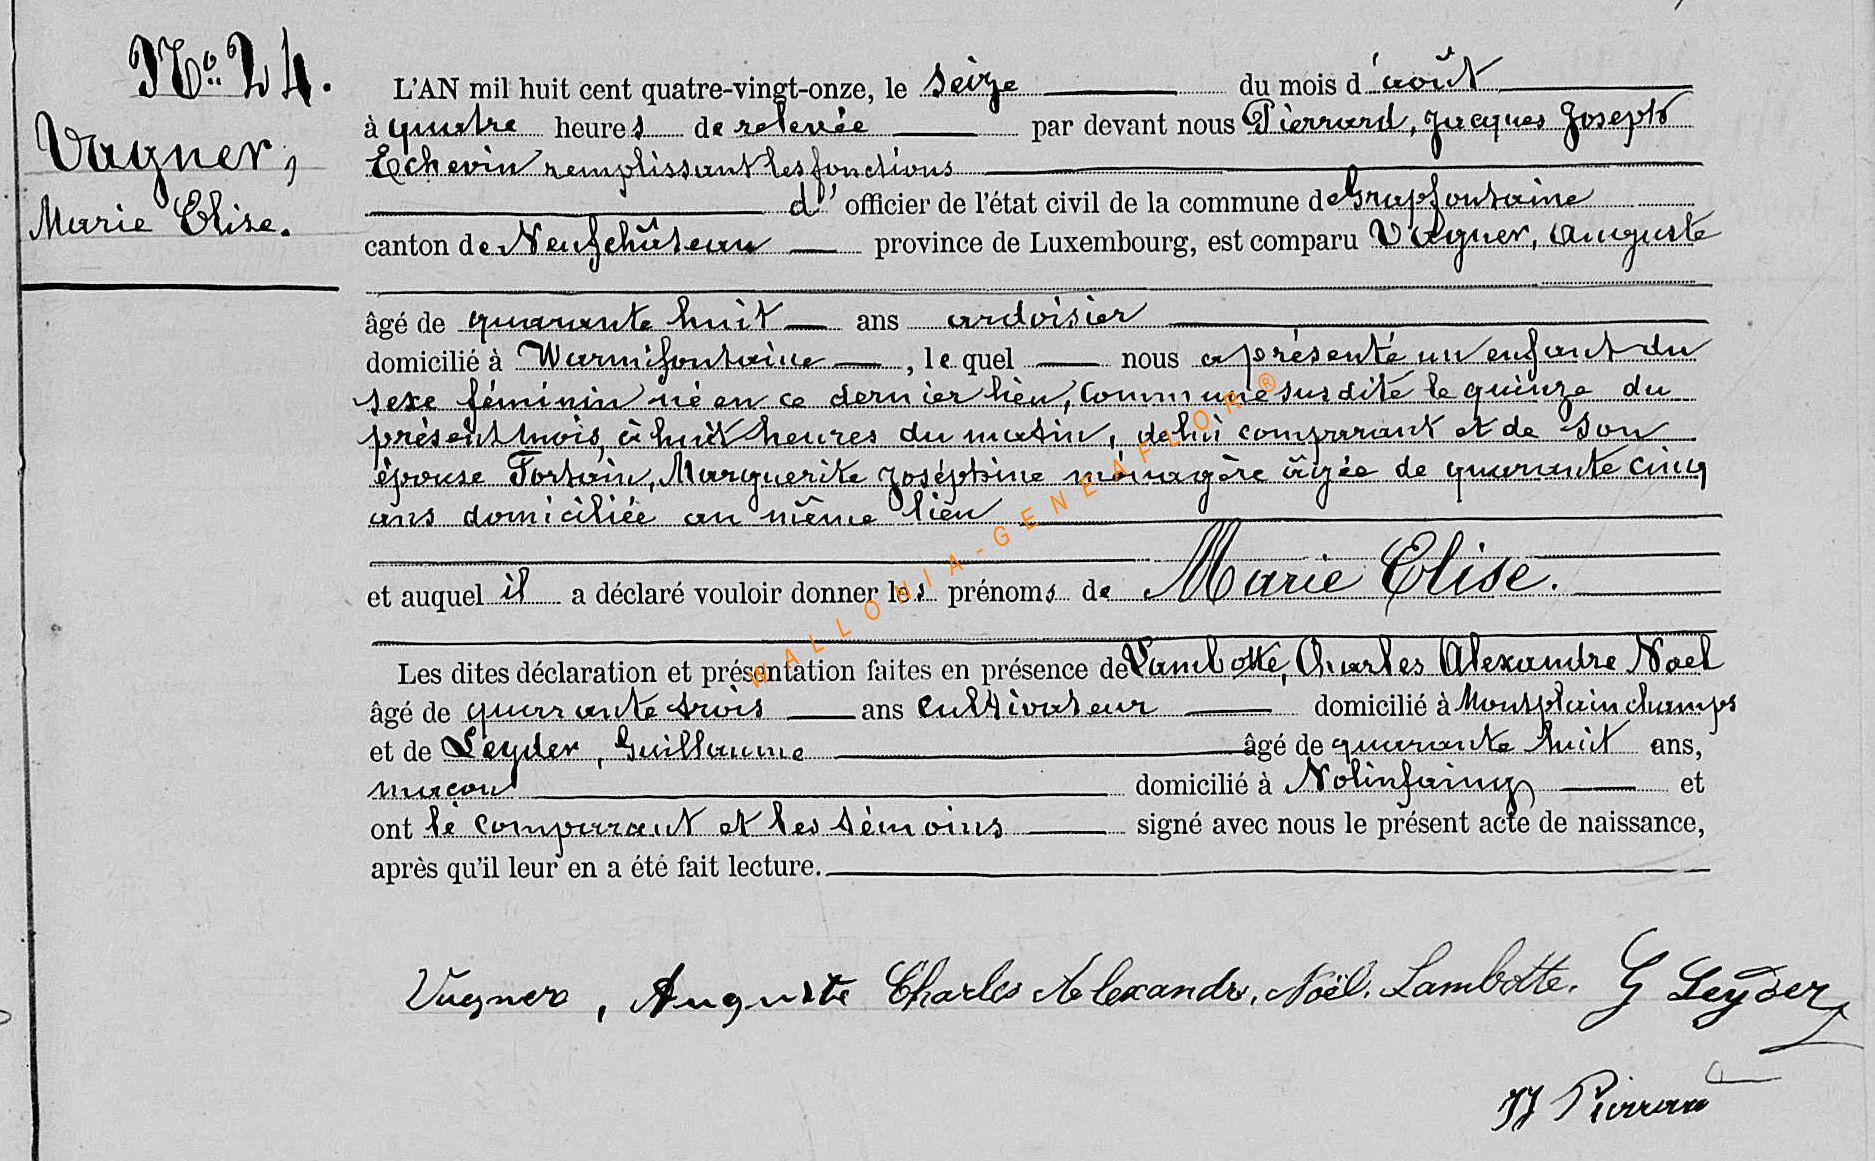 No 24.
Vagner,
Marie Elise.
L'AN mil huit cent quatre-vingt-onze, le seize du mois d'août
à quatre heures de relevée par devant nous Pierrard, Jacques Joseph
Echevin remplissant les fonctions
d' officier de l'état civil de la commune de Grapfontaine
canton de Neufchâteau province de Luxembourg, est comparu Vagner, Auguste
âgé de quarante huit ans ardoisier
domicilié à Warmifontaine, lequel nous a présenté un enfant du
sexe féminin né en ce dernier lieu, commune susdite le quinze du
présent mois, à huit heures du matin, de lui comparant et de son
épouse Fortain, Marguerite Joséphine ménagère âgée de quarante cinq
ans domiciliée au même lieu
et auquel il a déclaré vouloir donner les prénoms de Marie Elise.
Les dites déclaration et présentation faites en présence de Lambotte, Charles Alexandre Noel
âgé de quarante trois ans cultivateur domicilié à Montplainchamps
et de Leyder, Guillaume âgé de quarante huit ans,
maçon domicilié à Nolinfaing et
ont le comparant et les témoins signé avec nous le présent acte de naissance,
après qu'il leur en a été fait lecture.
Vagner, Auguste Charles Alexandre, Noël, Lambotte. G Leyder
JJ Pierrard
WALLONIA-GENEAFLOR®